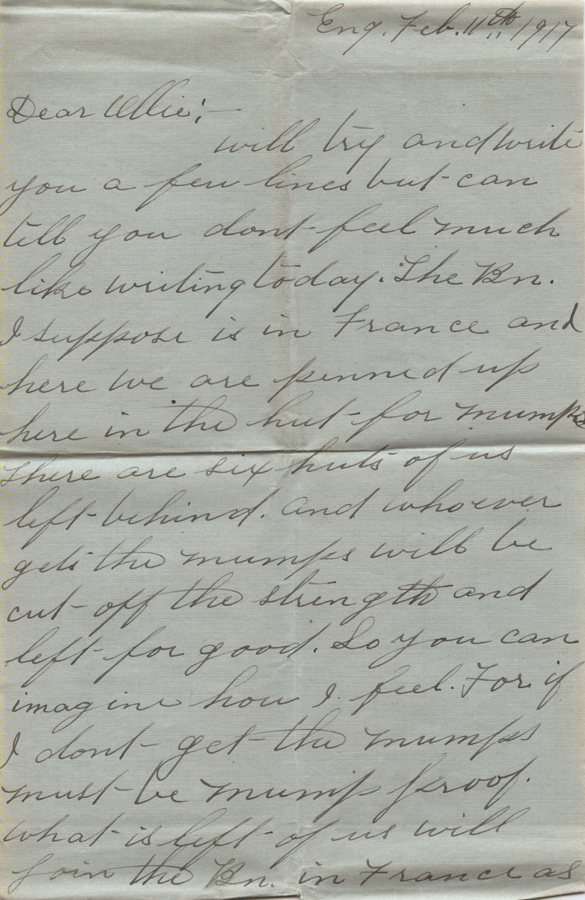 Eng. Feb. 11th, 1917
Dear Ollie:-
will try and write
you a few lines but can
tell you dont feel much
like writing today. The Bn.
I suppose is in France and
here we are penned up
here in the hut for mumps
there are six huts of us
left behind. and whoever
gets the mumps will be
cut off the strength and
left for good. So you can
imagine how I feel. For if
I dont get the mumps
must be mump proof.
what is left of us will
join the Bn. in France as